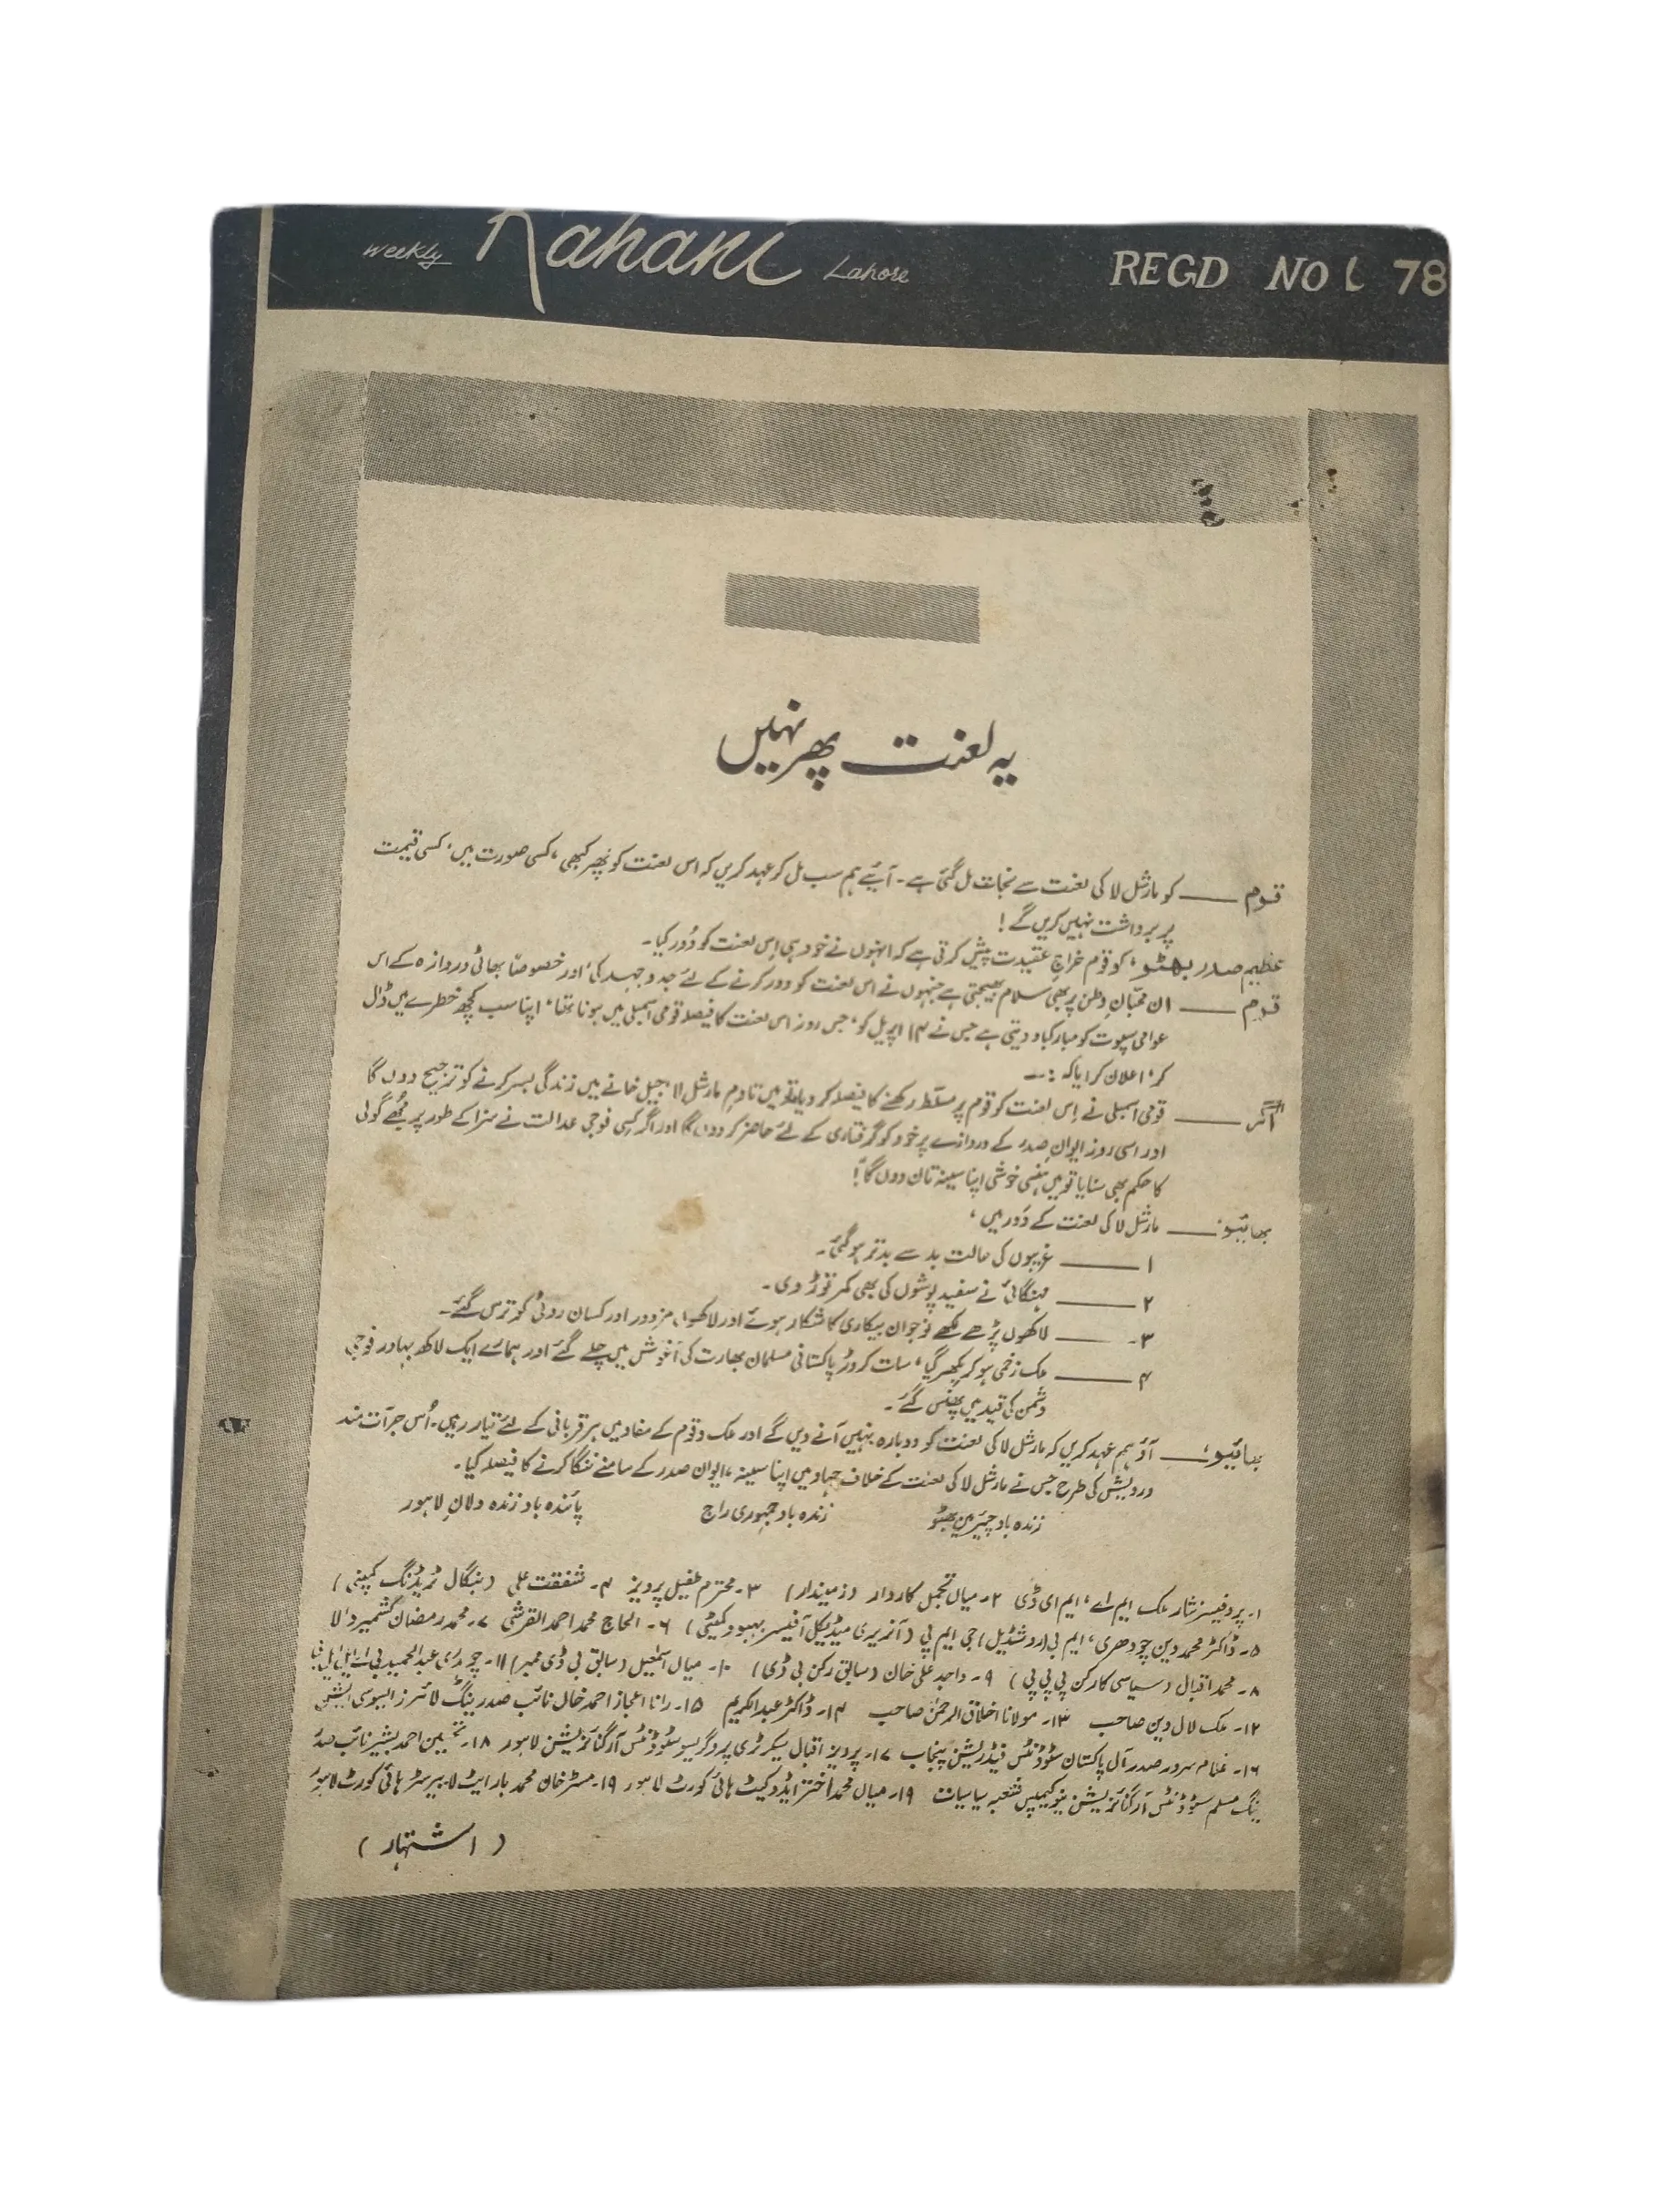 Weekly Kahani Lahore REGD NO L 78
یہ لعنت پھر نہیں
قوم ــــ کو مارشل لا کی لعنت سے نجات مل گئی ہے۔ آیئے ہم سب مل کر عہد کریں کہ اس لعنت کو پھر کبھی، کسی صورت میں، کسی قیمت
پر برداشت نہیں کریں گے!
عظیم صدر بھٹو، کو قوم خراجِ عقیدت پیش کرتی ہے کہ انہوں نے خود ہی اِس لعنت کو دُور کیا۔
قوم ــــ ان محبّانِ وطن پر بھی سلام بھیجتی ہے جنہوں نے اس لعنت کو دور کرنے کے لئے جدوجہد کی، اور خصوصاً بھاٹی دروازہ کے اس
عوامی سپوت کو مبارکباد دیتی ہے جس نے ۱۴ اپریل کو، جس روز اس لعنت کا فیصلہ قومی اسمبلی میں ہونا تھا، اپنا سب کچھ خطرے میں ڈال
کر، اعلان کرایا کہ :۔
"اگر ــــ قومی اسمبلی نے اِس لعنت کو قوم پر مسلّط رکھنے کا فیصلہ کر دیا تو میں تادمِ مارشل لا، جیل خانے میں زندگی بسر کرنے کو ترجیح دوں گا
اور اسی روز ایوانِ صدر کے دروازے پر خود کو گرفتاری کے لئے حاضر کر دوں گا اور اگر کسی فوجی عدالت نے سزا کے طور پر مجھے گولی
کا حکم بھی سنایا تو میں ہنسی خوشی اپنا سینہ تان دوں گا"!
بھائیو: ــــ مارشل لا کی لعنت کے دَور میں،
۱ ــــ غریبوں کی حالت بد سے بدتر ہو گئی۔
۲ ــــ مہنگائی نے سفید پوشوں کی بھی کمر توڑ دی۔
۳۔ ــــ لاکھوں پڑھے لکھے نوجوان بیکاری کا شکار ہوئے اور لاکھوں مزدور اور کسان روٹی کو ترس گئے۔
۴ ــــ ملک زخمی ہو کر بکھر گیا، سات کروڑ پاکستانی مسلمان بھارت کی آغوش میں چلے گئے اور ہمارے ایک لاکھ بہادر فوجی
دشمن کی قید میں پھنس گئے۔
بھائیو: ــــ آؤ ہم عہد کریں کہ مارشل لا کی لعنت کو دوبارہ نہیں آنے دیں گے اور ملک و قوم کے مفاد میں ہر قربانی کے لئے تیار رہیں۔ اُس جرأت مند
درویش کی طرح جس نے مارشل لا کی لعنت کے خلاف جہاد میں اپنا سینہ، ایوان صدر کے سامنے ننگا کرنے کا فیصلہ کیا۔
زندہ باد چیئرمین بھٹو زندہ باد جمہوری راج پائندہ باد زندہ دلانِ لاہور
۱۔ پروفیسر نثار ملک ایم اے، ایم ای ڈی ۲۔ میاں تجمل کاردار (زمیندار) ۳۔ محترم طفیل پرویز ۴۔ شفقت علی (بنگال ٹریڈنگ کمپنی)
۵۔ ڈاکٹر محمد دین چودھری، ایم بی (روشڈیل) جی ایم پی (آنریری میڈیکل آفیسر بہبود کمیٹی) ۶۔ الحاج محمد احمد القرشی ۷۔ محمد رمضان کشمیر والا
۸۔ محمد اقبال (سیاسی کارکن پی پی پی) ۹۔ واجد علی خان (سابق رکن بی ڈی) ۱۰۔ میاں اسمٰعیل (سابق بی ڈی ممبر) ۱۱۔ چوہدری عبدالحمید بی اے ایل ایل بی
۱۲۔ ملک لال دین صاحب ۱۳۔ مولانا اخلاق الرحمٰن صاحب ۱۴۔ ڈاکٹر عبدالکریم ۱۵۔ رانا اعجاز احمد خاں نائب صدر ینگ لائرز ایسوسی ایشن
۱۶۔ غلام سرور صدر آل پاکستان سٹوڈنٹس فیڈریشن پنجاب ۱۷۔ پرویز اقبال سیکرٹری پروگریسو سٹوڈنٹس آرگنائزیشن لاہور ۱۸۔ تحسین احمد بشیر نائب صدر
ینگ مسلم سٹوڈنٹس آرگنائزیشن نیو کیمپس شعبہ سیاسیات ۱۹۔ میاں محمد اختر ایڈووکیٹ ہائی کورٹ لاہور ۱۹۔ مسٹر خان محمد بار ایٹ لا بیرسٹر ہائی کورٹ لاہور
(اشتہار)